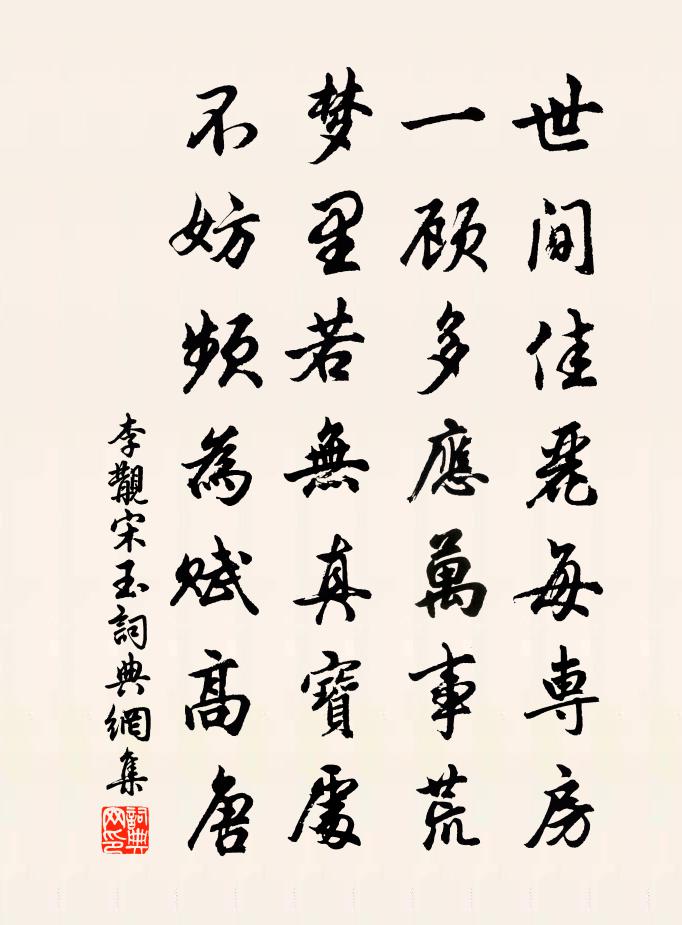 世間佳麗每専房
一顧多應萬事荒
梦里若無真寶處
不妨頻為赋高唐
李覯宋玉詞典網集
詞典网印